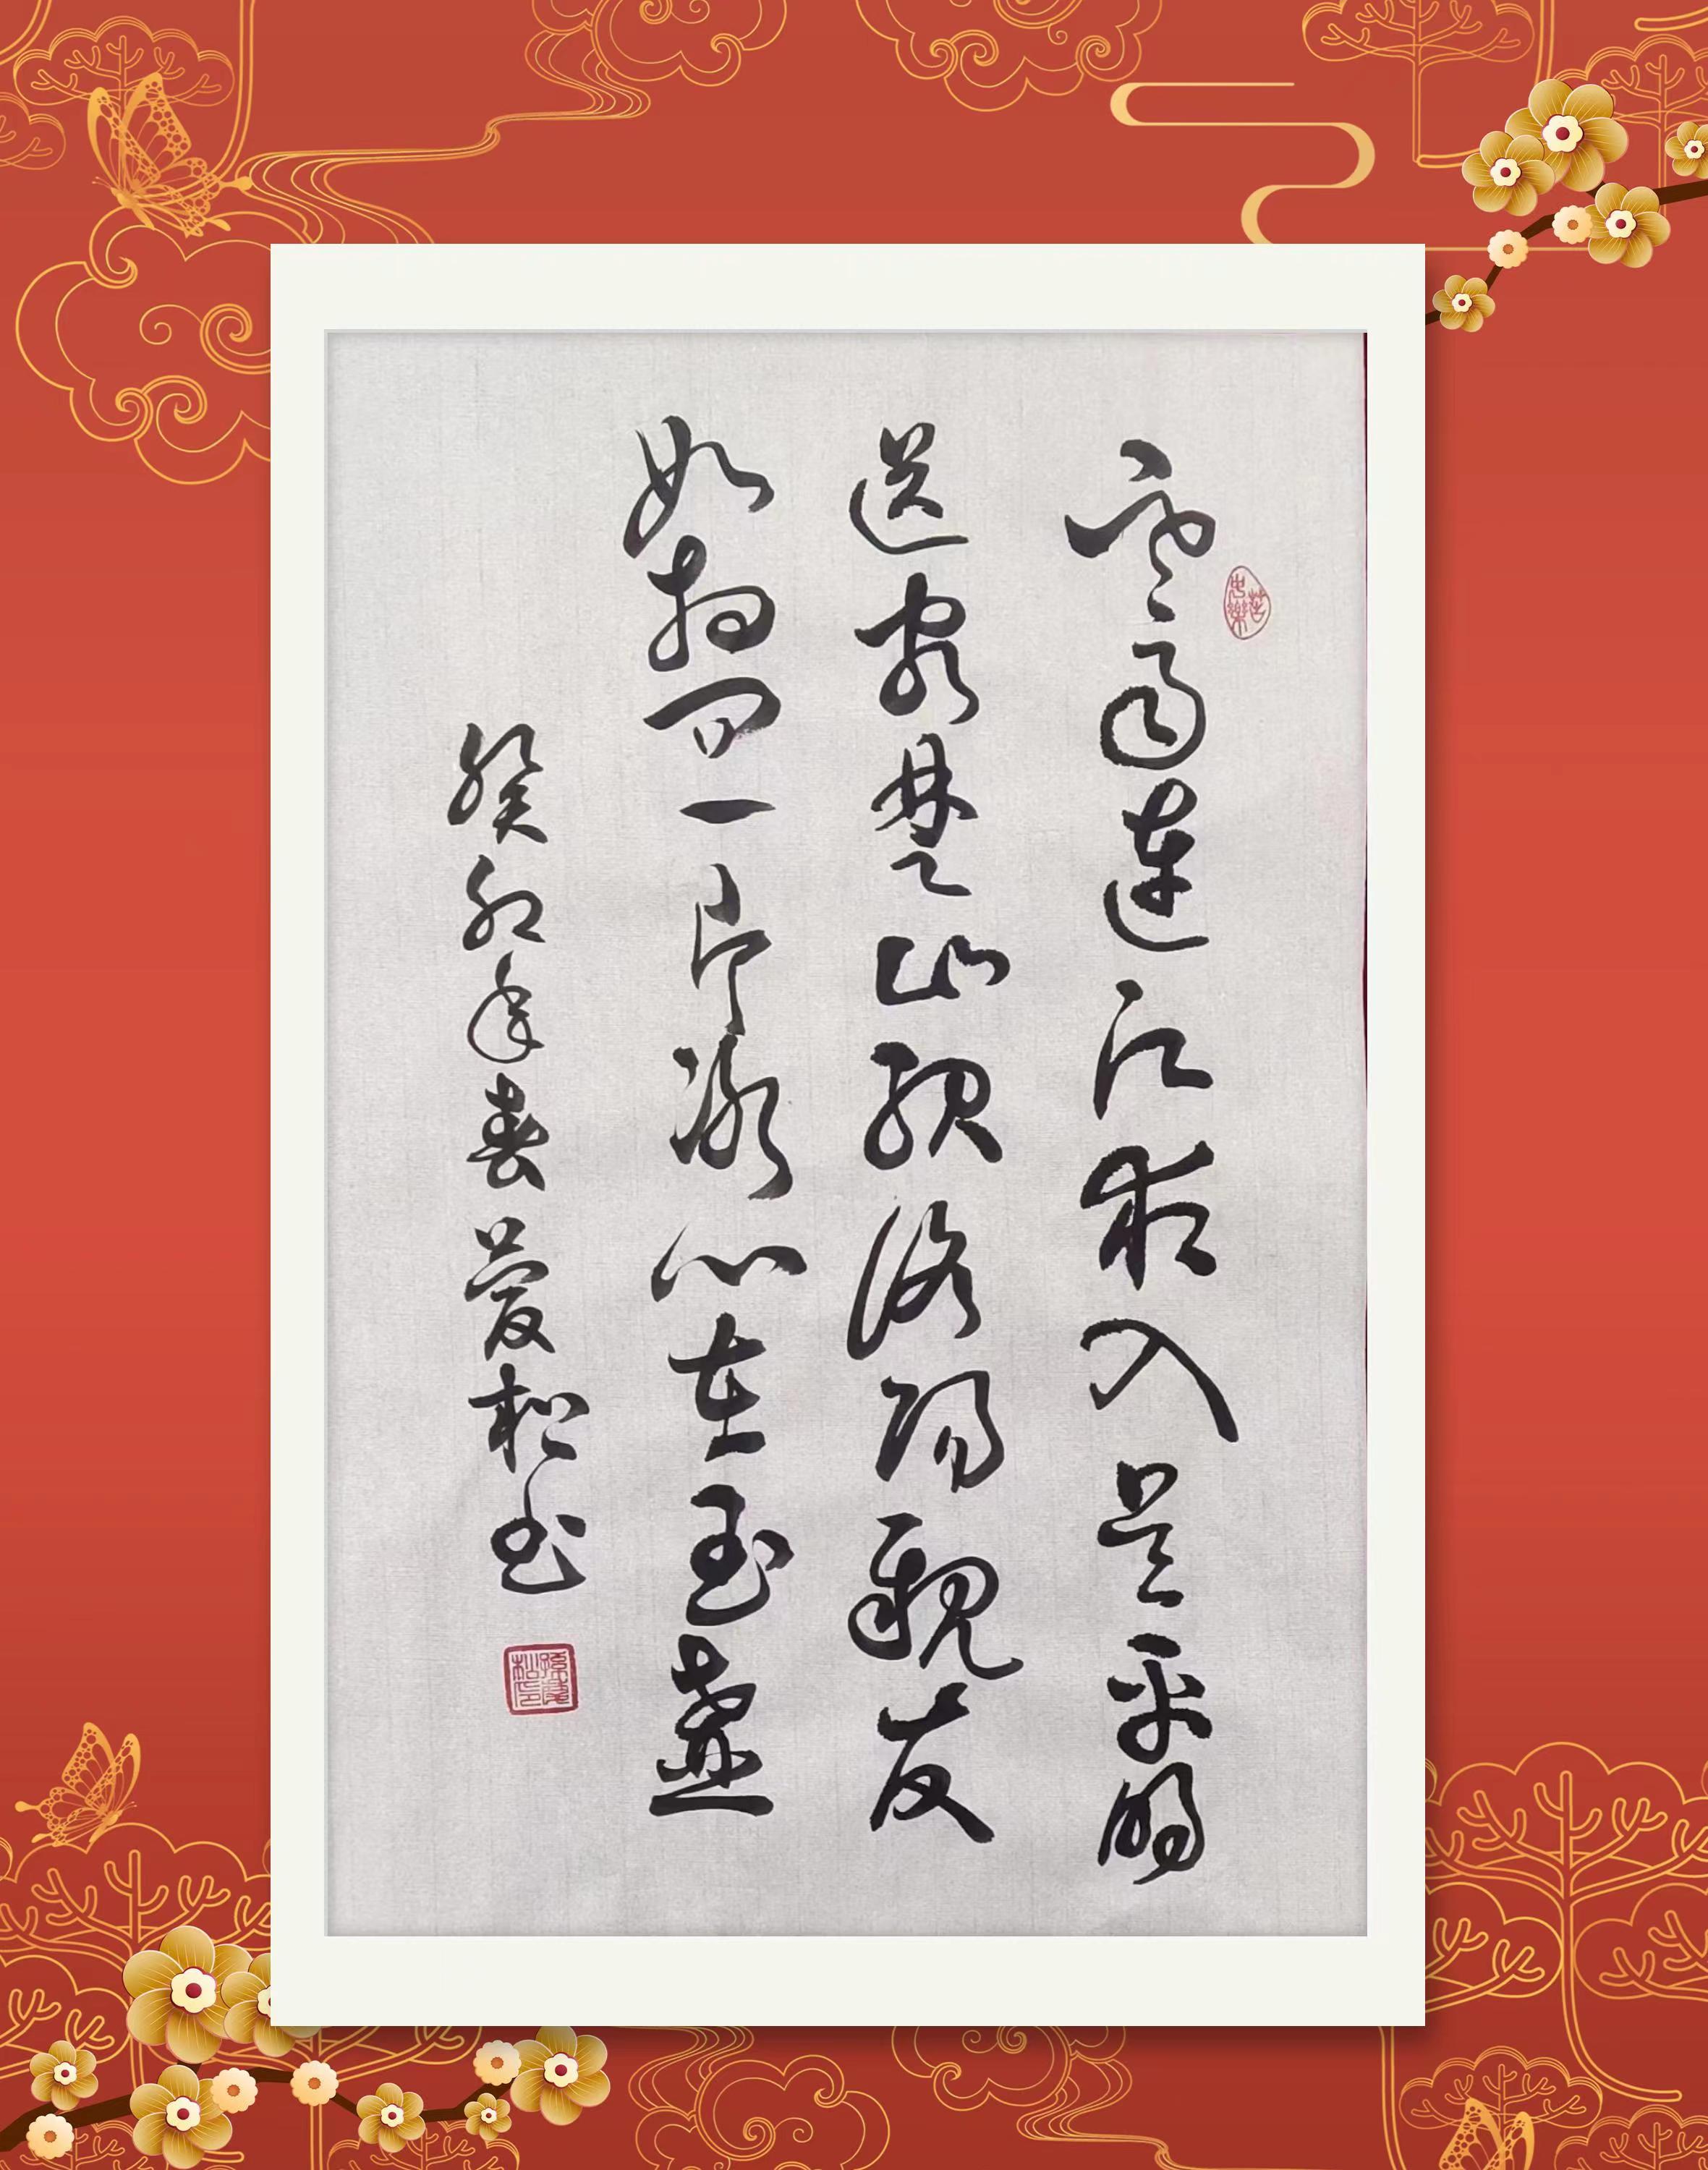 寒雨連江夜入吳平明
送客楚山孤洛陽親友
如相問一片冰心在玉壺
癸卯年春松書